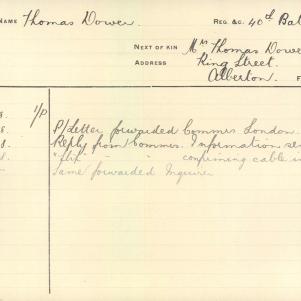 NAME Thomas Dower REG. &C. 40th Bat
NEXT OF KIN Mrs Thomas Dowe
ADDRESS King Street.
Alberton.
8. 1/P
8. P/Letter forwarded Commrs London.
8. Reply from Commrs. Information se
8. " " " confirming cable i
Same forwarded Inquirer